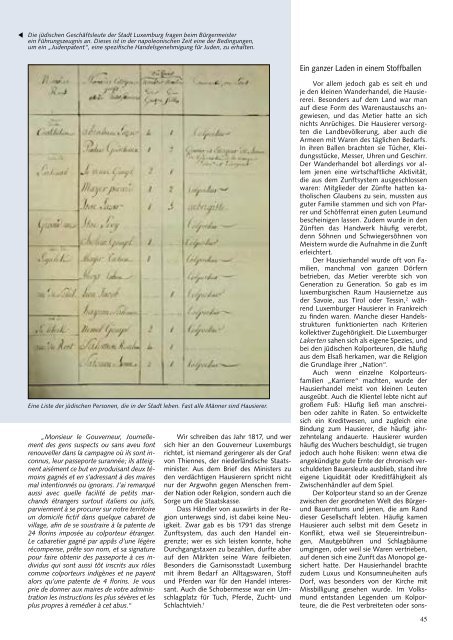 Die jüdischen Geschäftsleute der Stadt Luxemburg fragen beim Bürgermeister
ein Führungszeugnis an. Dieses ist in der napoleonischen Zeit eine der Bedingungen,
um ein „Judenpatent“, eine spezifische Handelsgenehmigung für Juden, zu erhalten.
Eine Liste der jüdischen Personen, die in der Stadt leben. Fast alle Männer sind Hausierer.
„Monsieur le Gouverneur, Journelle-
ment des gens suspects ou sans aveu font
renouveller dans la campagne où ils sont in-
connus, leur passeporte surannée, ils atteig-
nent aisément ce but en produisant deux té-
moins gagnés et en s'adressant à des maires
mal intentionnés ou ignorans. J'ai remarqué
aussi avec quelle facilité de petits mar-
chands étrangers surtout italiens ou juifs,
parviennent à se procurer sur notre territoire
un domicile fictif dans quelque cabaret de
village, afin de se soustraire à la patente de
24 florins imposée au colporteur étranger.
Le cabaretier gagné par appâs d'une légère
récompense, prête son nom, et sa signature
pour faire obtenir des passeporte à ces in-
dividus qui sont aussi tôt inscrits aux rôles
comme colporteurs indigènes et ne payent
alors qu'une patente de 4 florins. Je vous
prie de donner aux maires de votre adminis-
tration les instructions les plus sévères et les
plus propres à remédier à cet abus.“
Wir schreiben das Jahr 1817, und wer
sich hier an den Gouverneur Luxemburgs
richtet, ist niemand geringerer als der Graf
von Thiennes, der niederländische Staats-
minister. Aus dem Brief des Ministers zu
den verdächtigen Hausierern spricht nicht
nur der Argwohn gegen Menschen frem-
der Nation oder Religion, sondern auch die
Sorge um die Staatskasse.
Dass Händler von auswärts in der Re-
gion unterwegs sind, ist dabei keine Neu-
igkeit. Zwar gab es bis 1791 das strenge
Zunftsystem, das auch den Handel ein-
grenzte; wer es sich leisten konnte, hohe
Durchgangstaxen zu bezahlen, durfte aber
auf den Märkten seine Ware feilbieten.
Besonders die Garnisonstadt Luxemburg
mit ihrem Bedarf an Alltagswaren, Stoff
und Pferden war für den Handel interes-
sant. Auch die Schobermesse war ein Um-
schlagplatz für Tuch, Pferde, Zucht- und
Schlachtvieh.¹
Ein ganzer Laden in einem Stoffballen
Vor allem jedoch gab es seit eh und
je den kleinen Wanderhandel, die Hausie-
rerei. Besonders auf dem Land war man
auf diese Form des Warenaustauschs an-
gewiesen, und das Metier hatte an sich
nichts Anrüchiges. Die Hausierer versorg-
ten die Landbevölkerung, aber auch die
Armeen mit Waren des täglichen Bedarfs.
In ihren Ballen brachten sie Tücher, Klei-
dungsstücke, Messer, Uhren und Geschirr.
Der Wanderhandel bot allerdings vor al-
lem jenen eine wirtschaftliche Aktivität,
die aus dem Zunftsystem ausgeschlossen
waren: Mitglieder der Zünfte hatten ka-
tholischen Glaubens zu sein, mussten aus
guter Familie stammen und sich von Pfar-
rer und Schöffenrat einen guten Leumund
bescheinigen lassen. Zudem wurde in den
Zünften das Handwerk häufig vererbt,
denn Söhnen und Schwiegersöhnen von
Meistern wurde die Aufnahme in die Zunft
erleichtert.
Der Hausierhandel wurde oft von Fa-
milien, manchmal von ganzen Dörfern
betrieben, das Metier vererbte sich von
Generation zu Generation. So gab es im
luxemburgischen Raum Hausiernetze aus
der Savoie, aus Tirol oder Tessin,² wäh-
rend Luxemburger Hausierer in Frankreich
zu finden waren. Manche dieser Handels-
strukturen funktionierten nach Kriterien
kollektiver Zugehörigkeit. Die Luxemburger
Lakerten sahen sich als eigene Spezies, und
bei den jüdischen Kolporteuren, die häufig
aus dem Elsaß herkamen, war die Religion
die Grundlage ihrer „Nation“.
Auch wenn einzelne Kolporteurs-
familien „Karriere“ machten, wurde der
Hausierhandel meist von kleinen Leuten
ausgeübt. Auch die Klientel lebte nicht auf
großem Fuß: Häufig ließ man anschrei-
ben oder zahlte in Raten. So entwickelte
sich ein Kreditwesen, und zugleich eine
Bindung zum Hausierer, die häufig jahr-
zehntelang andauerte. Hausierer wurden
häufig des Wuchers beschuldigt, sie trugen
jedoch auch hohe Risiken: wenn etwa die
angekündigte gute Ernte der chronisch ver-
schuldeten Bauersleute ausblieb, stand ihre
eigene Liquidität oder Kreditfähigkeit als
Zwischenhändler auf dem Spiel.
Der Kolporteur stand so an der Grenze
zwischen der geordneten Welt des Bürger-
und Bauerntums und jenen, die am Rand
dieser Gesellschaft lebten. Häufig kamen
Hausierer auch selbst mit dem Gesetz in
Konflikt, etwa weil sie Steuereintreibun-
gen, Mautgebühren und Schlagbäume
umgingen, oder weil sie Waren vertrieben,
auf denen sich eine Zunft das Monopol ge-
sichert hatte. Der Hausierhandel brachte
zudem Luxus und Konsumneuheiten aufs
Dorf, was besonders von der Kirche mit
Missbilligung gesehen wurde. Im Volks-
mund entstanden Legenden um Kolpor-
teure, die die Pest verbreiteten oder sons-
45